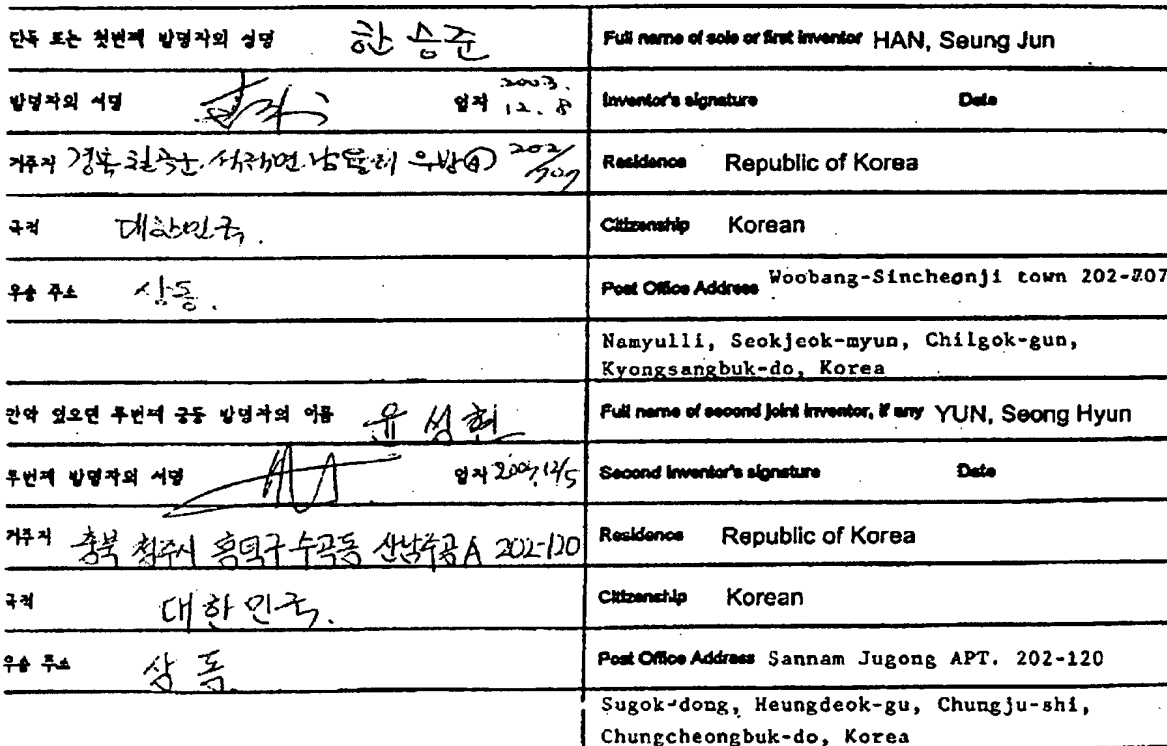 단독 또는 첫번째 발명자의 성명 한승준
Full name of sole or first inventor HAN, Seung Jun
발명자의 서명 일자 2003. 12. 8
Inventor's signature Date
거주지 경북 칠곡군. 석적면. 남율리 우방Ⓐ 202/707
Residence Republic of Korea
국적 대한민국.
Citizenship Korean
우송 주소 상동.
Post Office Address Woobang-Sincheonji town 202-707
Namyulli, Seokjeok-myun, Chilgok-gun,
Kyongsangbuk-do, Korea
만약 있으면 두번째 공동 발명자의 이름 윤성현
Full name of second joint inventor, if any YUN, Seong Hyun
두번째 발명자의 서명 일자 12/5
Second inventor's signature Date
거주지 충북 청주시 흥덕구 수곡동 산남주공A 202-120
Residence Republic of Korea
국적 대한민국.
Citizenship Korean
우송 주소 상동
Post Office Address Sannam Jugong APT. 202-120
Sugok-dong, Heungdeok-gu, Chungju-shi,
Chungcheongbuk-do, Korea